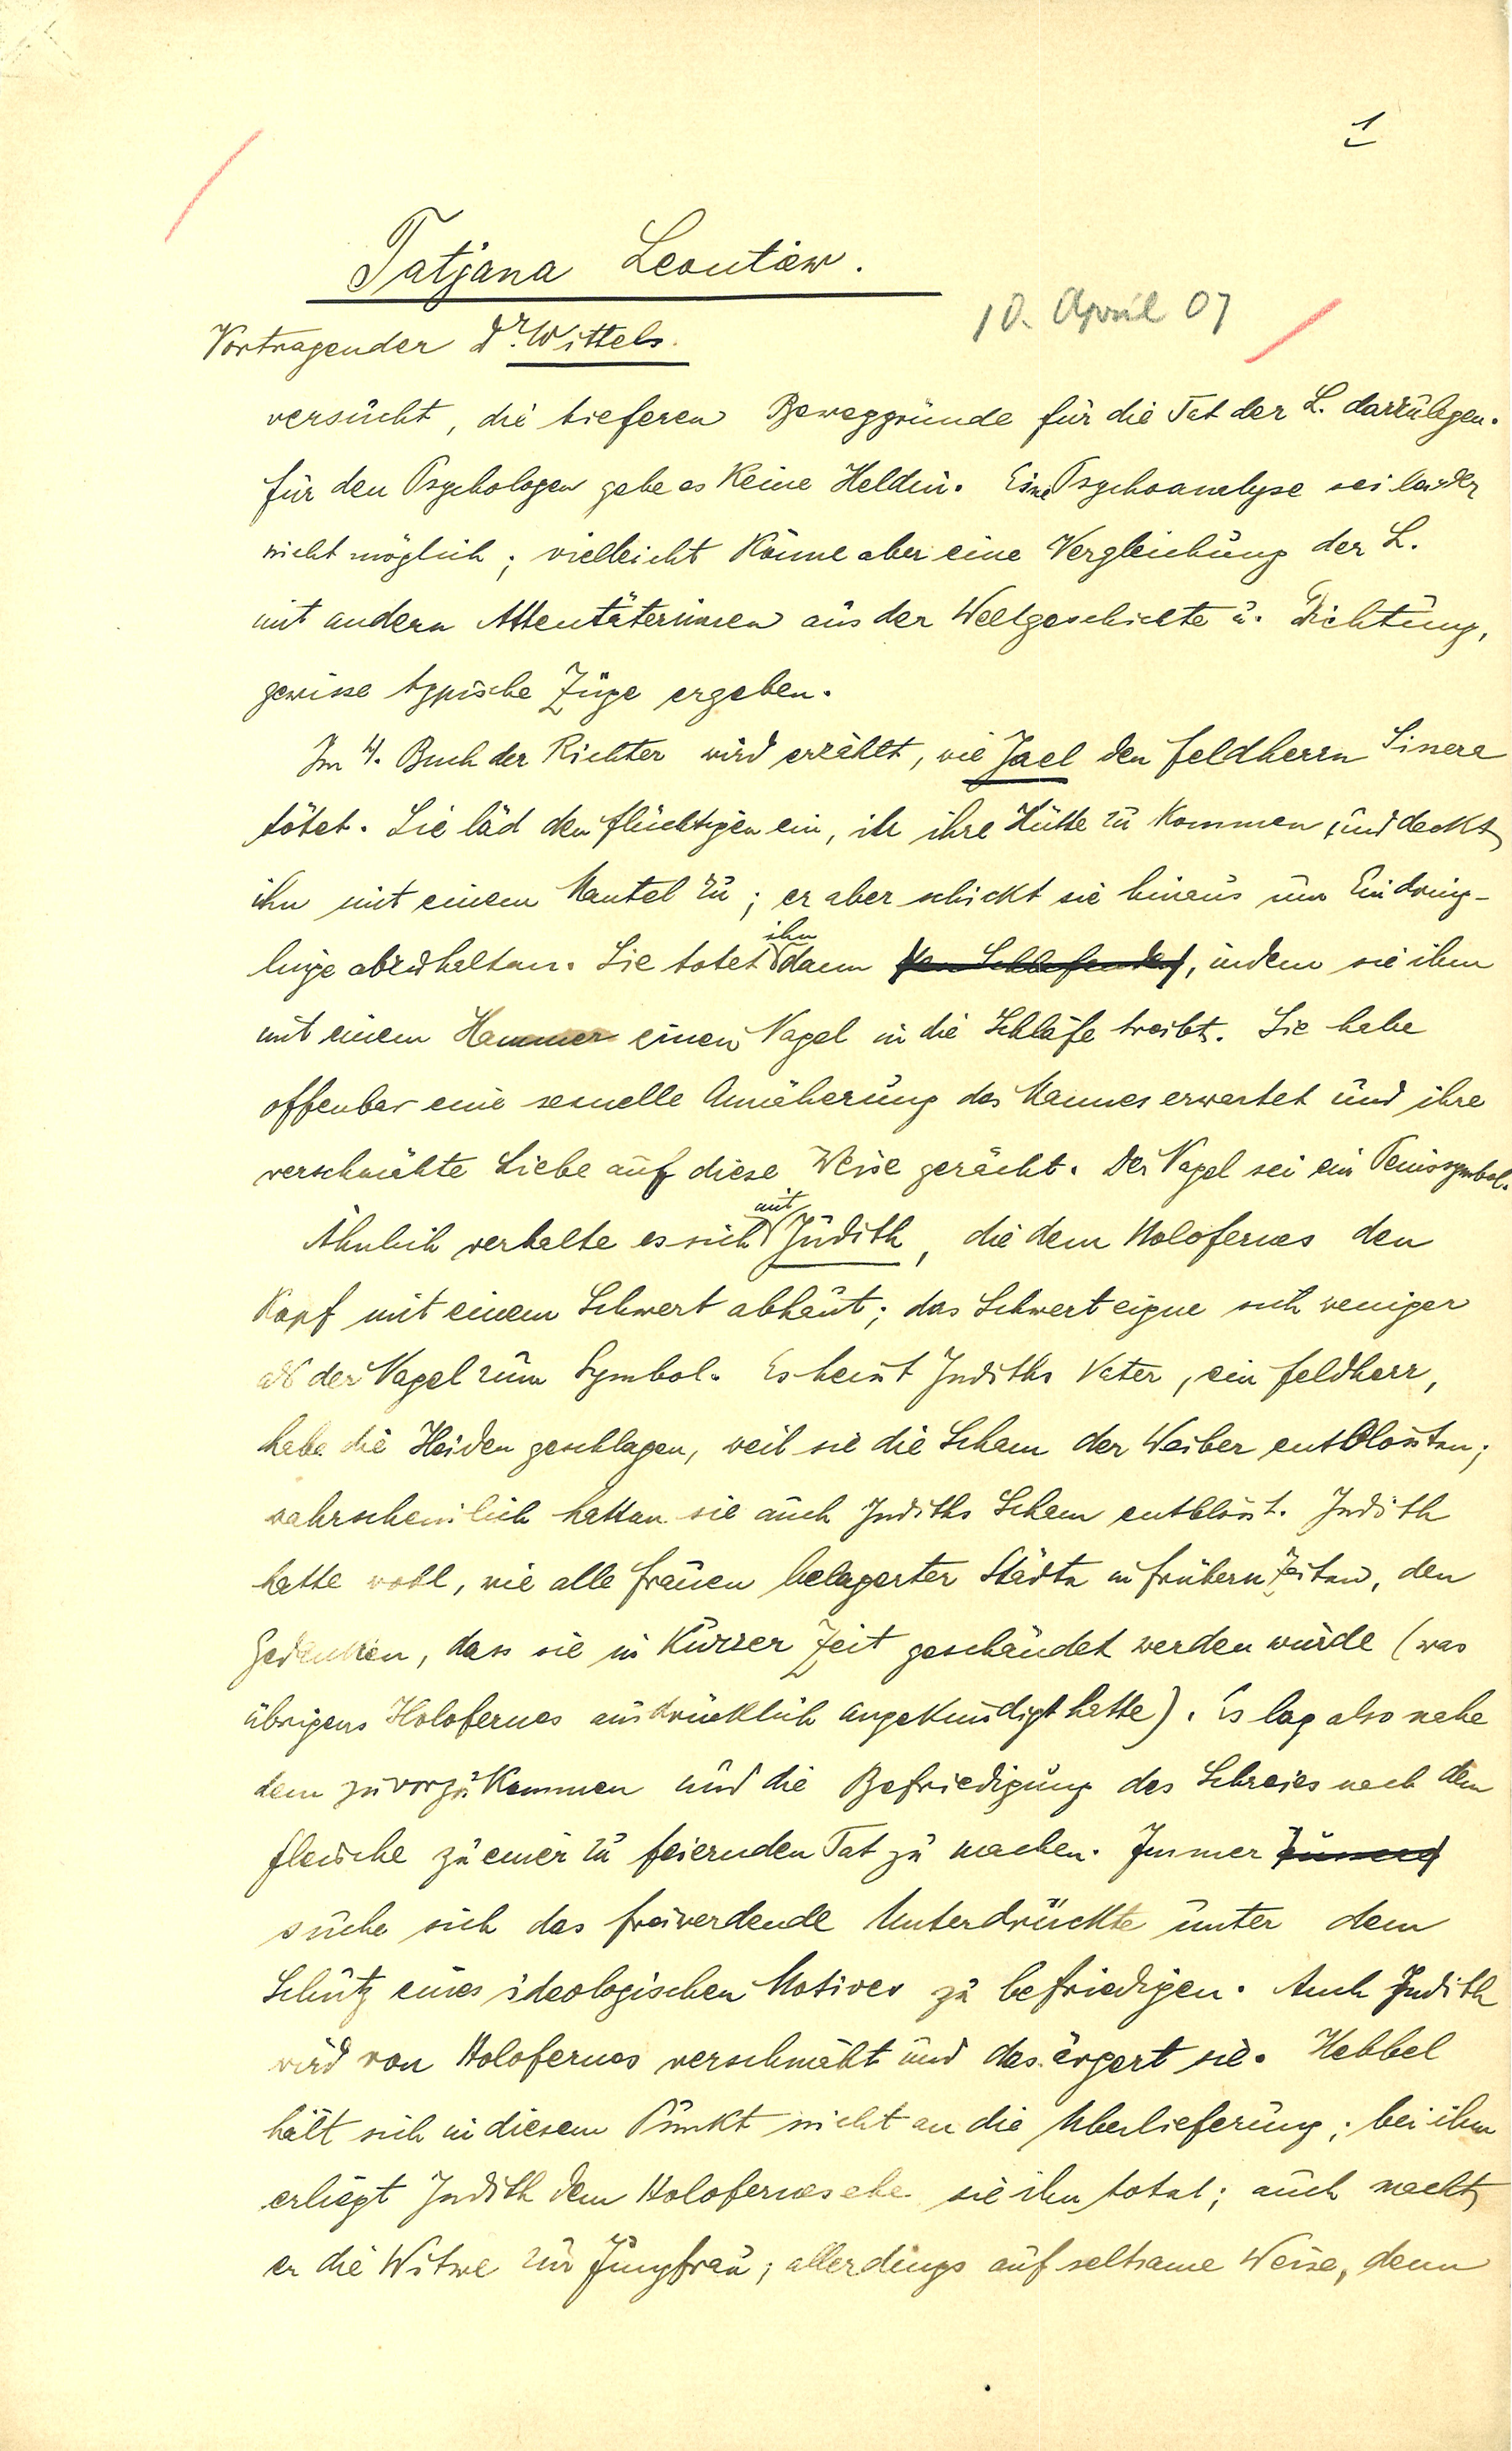 1
Tatjana Leontiew.
10. April 07
Vortragender Dr. Wittels.
versucht, die tieferen Beweggründe für die Tat der L. darzulegen.
für den Psychologen gebe es keine Heldin. Eine Psychoanalyse sei leider
nicht möglich; vielleicht könne aber eine Vergleichung der L.
mit andern Attentäterinnen aus der Weltgeschichte u. Dichtung,
gewisse typische Züge ergeben.
Im 4. Buch der Richter wird erzählt, wie Jael den Feldherrn Sisera
tötet. Sie läd den flüchtigen ein, in ihre Hütte zu kommen, und deckt
ihn mit einem Mantel zu; er aber schickt sie hinaus um Eindring-
linge abzuhalten. Sie totet ihn dann den Schlafenden, indem sie ihm
mit einem Hammer einen Nagel in die Schläfe treibt. Sie habe
offenbar eine sexuelle Annäherung des Mannes erwartet und ihre
verschmähte Liebe auf diese Weise gerächt. Der Nagel sei ein Penissymbol.
Ähnlich verhalte es sich mit Judith, die dem Holofernes den
Kopf mit einem Schwert abhaut; das Schwert eigne sich weniger
als der Nagel zum Symbol. Es heisst Judiths Vater, ein Feldherr,
habe die Heiden geschlagen, weil sie die Scham der Weiber entblössten;
wahrscheinlich hatten sie auch Judiths Scham entblösst. Judith
hatte wohl, wie alle Frauen belagerter Städte in frühern Zeiten, den
Gedanken, dass sie in kurzer Zeit geschändet werden würde (was
übrigens Holofernes ausdrücklich angekündigt hatte). Es lag also nahe
dem zuvorzukommen und die Befriedigung des Schreies nach dem
Fleische zu einer zu feiernden Tat zu machen. Immer
suche sich das freiwerdende Unterdrückte unter dem
Schutz eines ideologischen Motives zu befriedigen. Auch Judith
wird von Holofernes verschmäht und das ärgert sie. Hebbel
hält sich in diesem Punkt nicht an die Uberlieferung; bei ihm
erliegt Judith dem Holofernes ehe sie ihn totet; auch macht
er die Witwe zur Jungfrau; allerdings auf seltsame Weise, denn